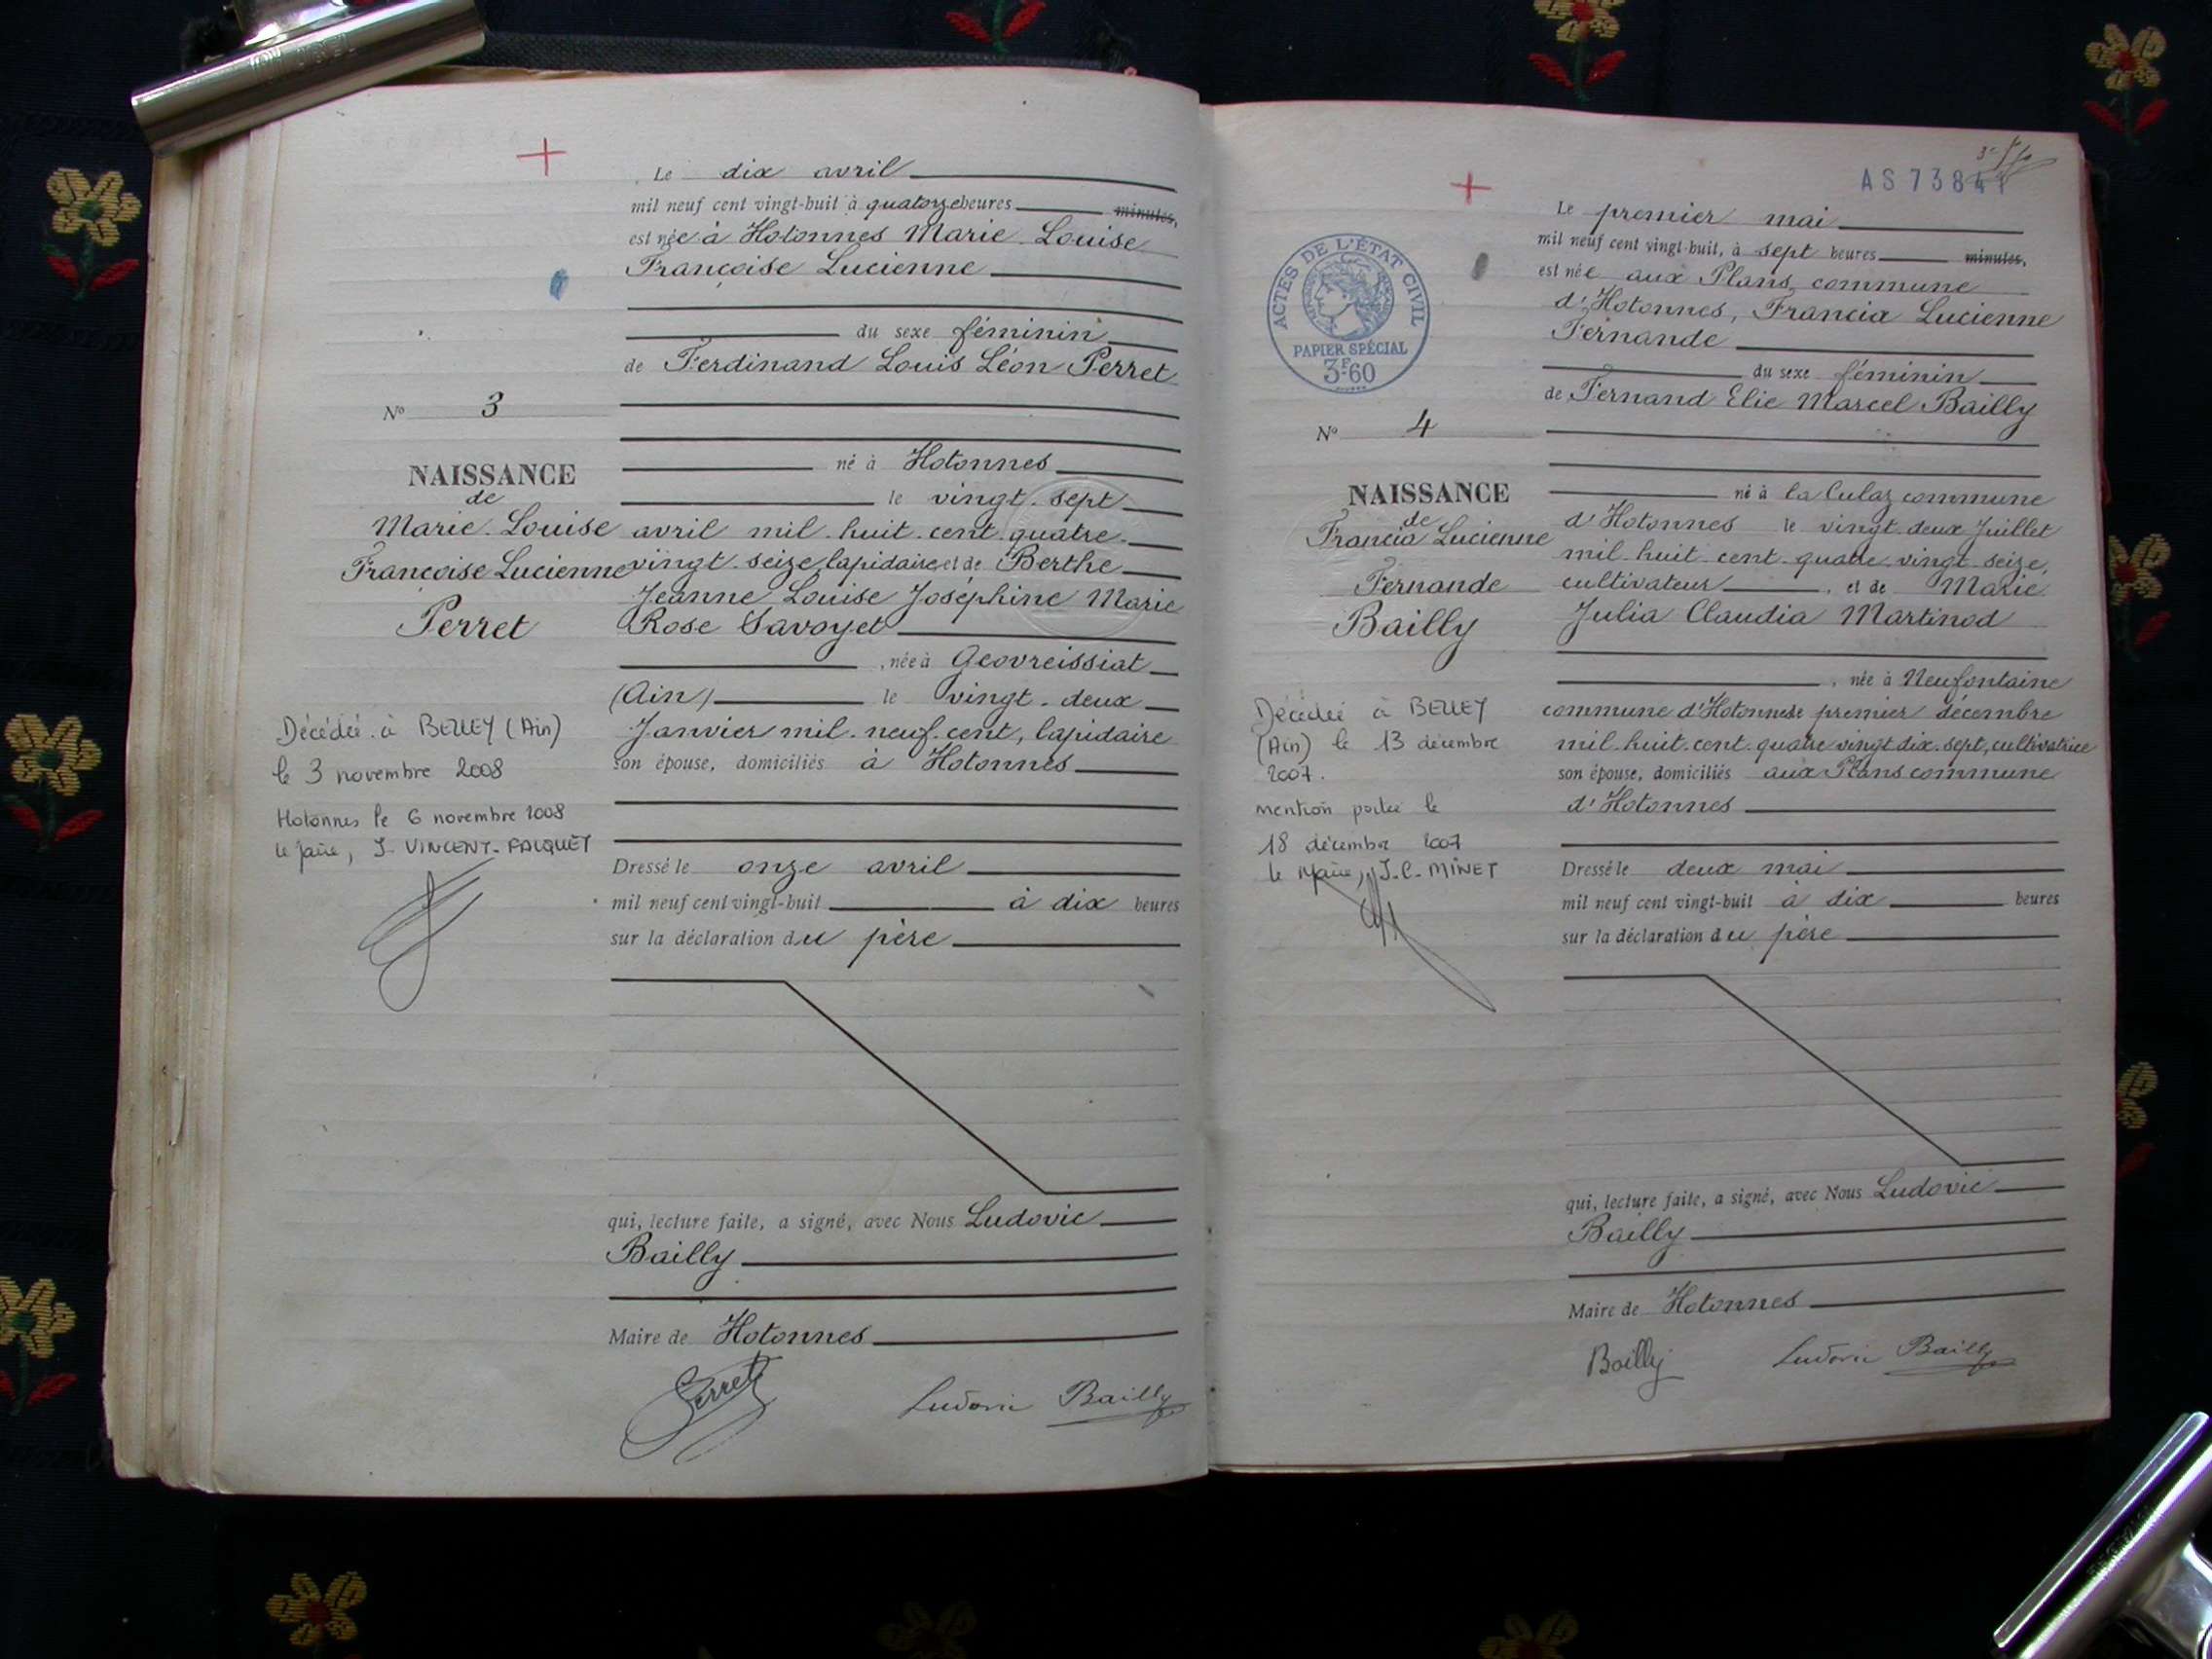 Le dix avril
mil neuf cent vingt-huit à quatorze heures minutes,
est née à Hotonnes Marie-Louise
Françoise Lucienne
du sexe féminin
de Ferdinand Louis Léon Perret
N° 3
né à Hotonnes
NAISSANCE
de
Marie-Louise
Françoise Lucienne
Perret
le vingt-sept
avril mil-huit-cent-quatre-
vingt-seize, lapidaire et de Berthe
Jeanne Louise Joséphine Marie
Rose Savoyet
, née à Geovreissiat
(Ain) le vingt-deux
Janvier mil-neuf-cent, lapidaire
son épouse, domiciliés à Hotonnes
Décédée à BELLEY (Ain)
le 3 novembre 2008
Hotonnes le 6 novembre 2008
le Maire, J. VINCENT-FALQUET
Dressé le onze avril
mil neuf cent vingt-huit à dix heures
sur la déclaration du père
qui, lecture faite, a signé, avec Nous Ludovic
Bailly
Maire de Hotonnes
Perret
Ludovic Bailly
AS 73841
Le premier mai
mil neuf cent vingt-huit, à sept heures minutes,
est née aux Plans, commune
d'Hotonnes, Francia Lucienne
Fernande
ACTES DE L'ÉTAT CIVIL
PAPIER SPÉCIAL
3F60
du sexe féminin
de Fernand Elie Marcel Bailly
N° 4
NAISSANCE
de
Francia Lucienne
Fernande
Bailly
né à la Culaz commune
d'Hotonnes le vingt-deux Juillet
mil-huit-cent-quatre-vingt-seize,
cultivateur, et de Marie
Julia Claudia Martinod
, née à Neufontaine
commune d'Hotonnes le premier décembre
mil-huit-cent-quatre vingt dix-sept, cultivatrice
son épouse, domiciliés aux Plans commune
d'Hotonnes
Décédée à BELLEY
(Ain) le 13 décembre
2007.
mention portée le
18 décembre 2007
le Maire, J.C. MINET
Dressé le deux mai
mil neuf cent vingt-huit à dix heures
sur la déclaration du père
qui, lecture faite, a signé, avec Nous Ludovic
Bailly
Maire de Hotonnes
Bailly
Ludovic Bailly